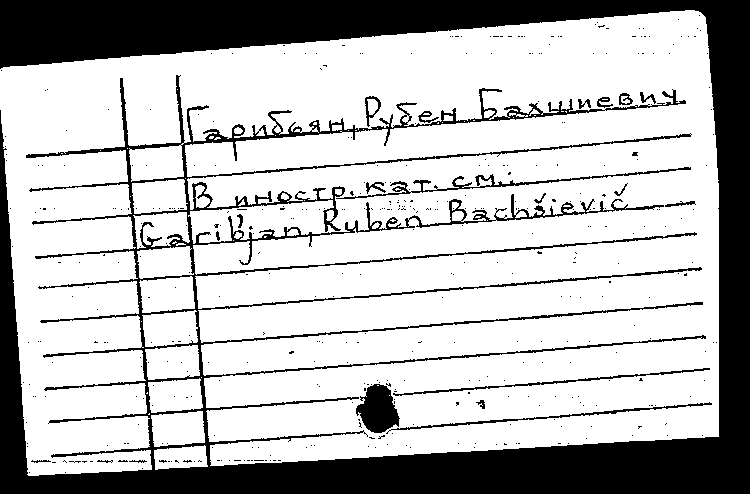 Гарибьян, Рубен Бахшиевич
В иностр. кат. см.:
Garib'jan, Ruben Bachšievič